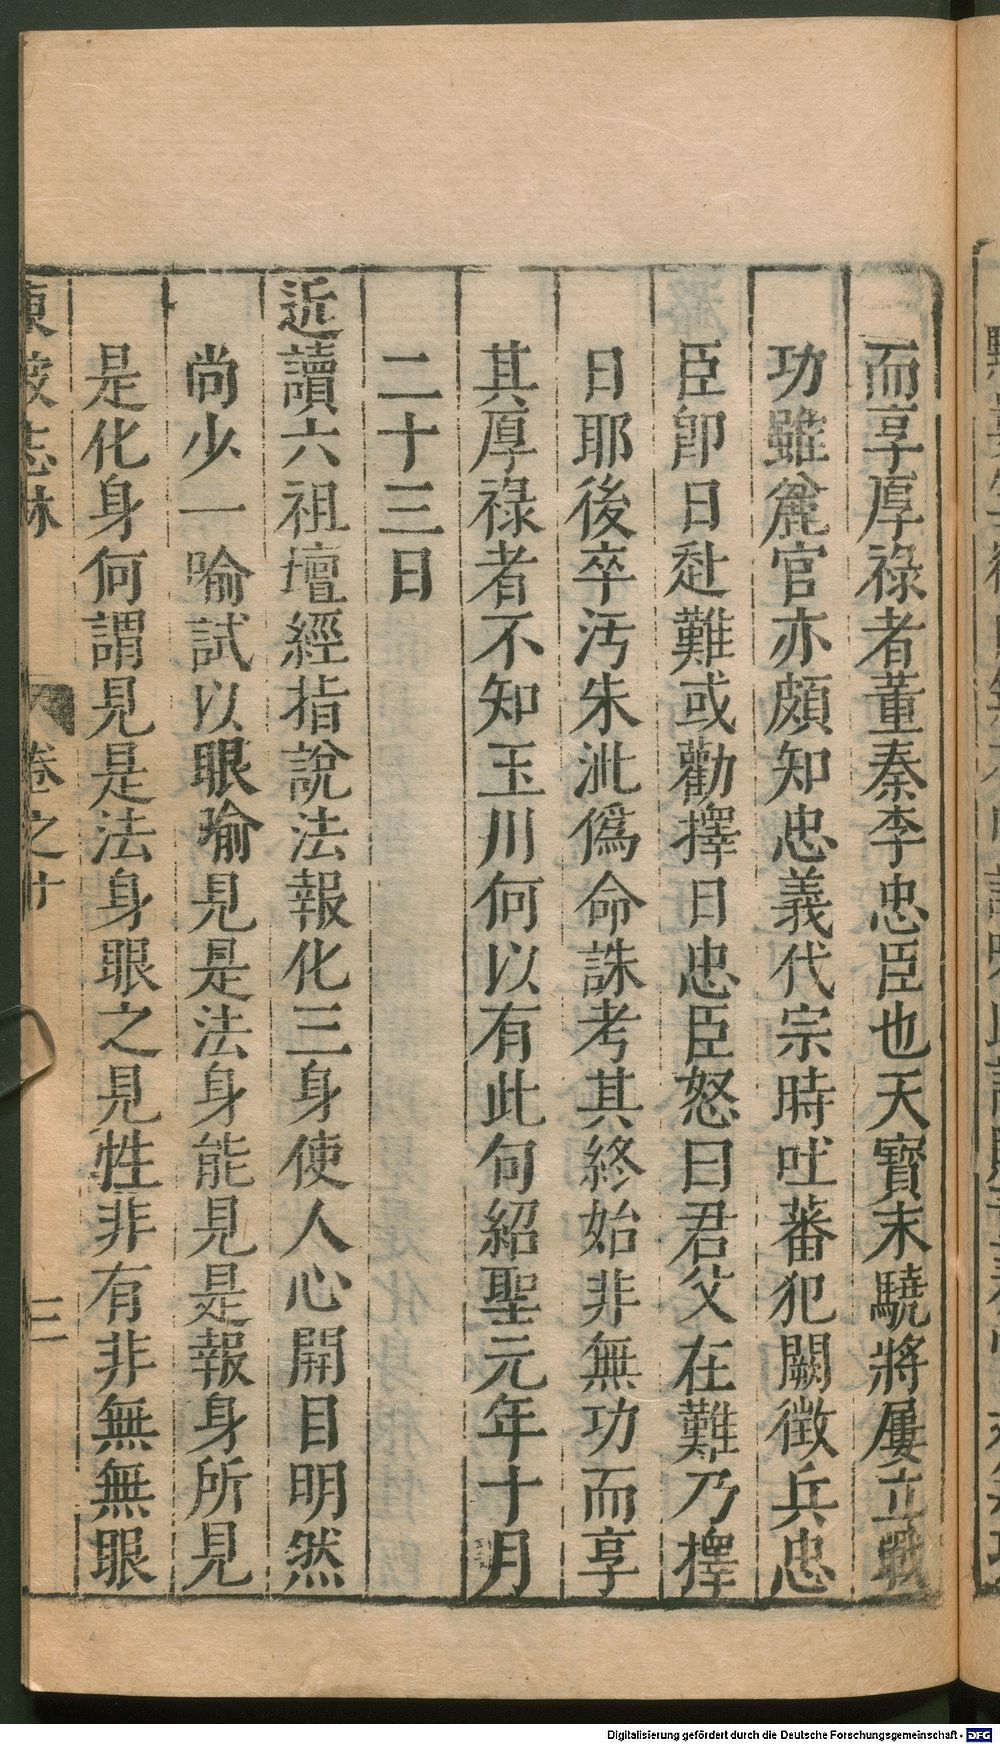 而享厚祿者董秦李忠臣也天寶末驍將屢立戰
功雖麄官亦頗知忠義代宗時吐蕃犯闕徵兵忠
臣卽日赴難或勸擇日忠臣怒曰君父在難乃擇
日耶後卒汚朱泚僞命誅考其終始非無功而享
其厚祿者不知玉川何以有此句紹聖元年十月
二十三日
近讀六祖壇經指說法報化三身使人心開目明然
尚少一喻試以眼喻見是法身能見是報身所見
是化身何謂見是法身眼之見性非有非無無眼
東坡志林 卷之十 三
Digitalisierung gefördert durch die Deutsche Forschungsgemeinschaft - DFG